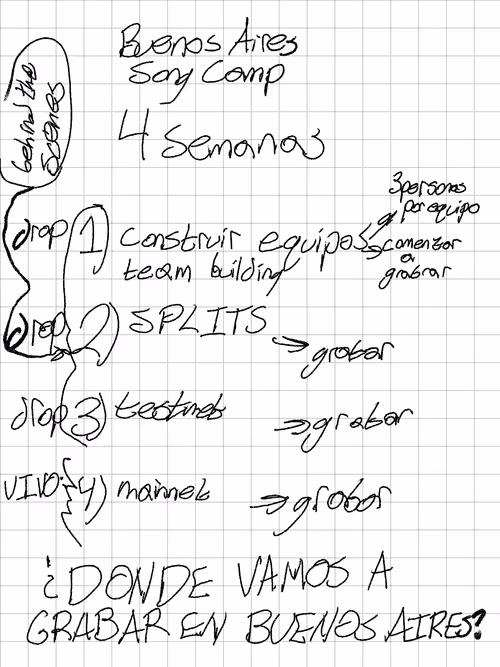 Buenos Aires
Song Camp
behind the
scenes
4 semanas
drop 1) construir equipos
team building
3 personas
por equipo
comenzar
a
grabar
drop 2) SPLITS
→ grabar
drop 3) testnet
→ grabar
VIVO 4) mainnet
→ grabar
¿DONDE VAMOS A
GRABAR EN BUENOS AIRES?